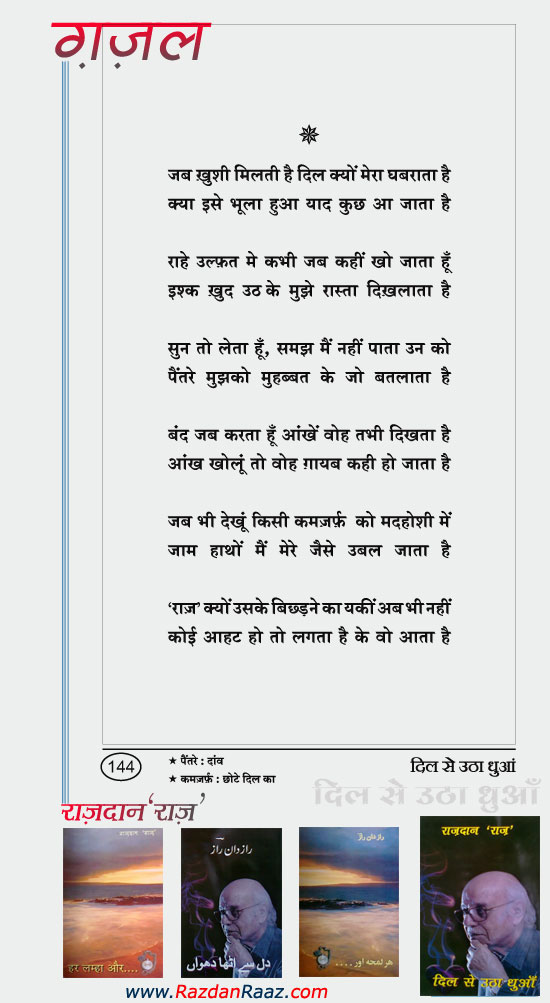 ग़ज़ल
जब ख़ुशी मिलती है दिल क्यों मेरा घबराता है
क्या इसे भूला हुआ याद कुछ आ जाता है
राहे उल्फ़त मे कभी जब कहीं खो जाता हूँ
इश्क ख़ुद उठ के मुझे रास्ता दिख़लाता है
सुन तो लेता हूँ, समझ मैं नहीं पाता उन को
पैंतरे मुझको मुहब्बत के जो बतलाता है
बंद जब करता हूँ आंखें वोह तभी दिखता है
आंख खोलूं तो वोह ग़ायब कही हो जाता है
जब भी देखूं किसी कमज़र्फ़ को मदहोशी में
जाम हाथों मैं मेरे जैसे उबल जाता है
‘राज़’ क्यों उसके बिछड़ने का यकीं अब भी नहीं
कोई आहट हो तो लगता है के वो आता है
144
★ पैंतरे : दांव
★ कमज़र्फ़ : छोटे दिल का
दिल से उठा धुआं
दिल से उठा धुआँ
राज़दान ‘राज़’
राज़दान ‘राज़’
हर लम्हा और....
رازدان رازؔ
دل سے اٹھا دھواں
رازدان رازؔ
ہر لمحہ اور ....
राज़दान ‘राज़’
दिल से उठा धुआँ
www.RazdanRaaz.com